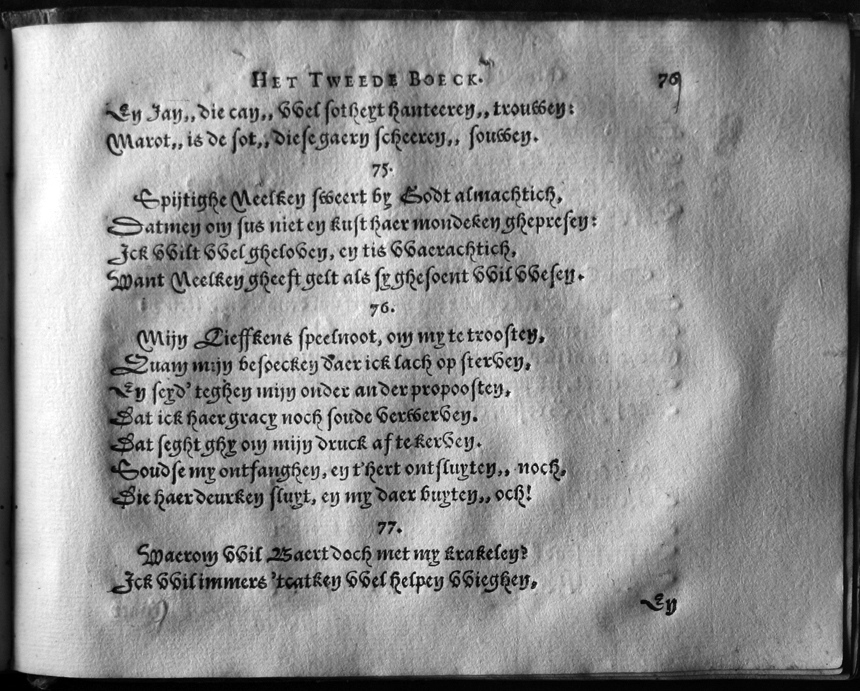 HET TWEEDE BOECK. 76
En Jan,, die can,, wel sotheyt hanteeren,, trouwen:
Marot,, is de sot,, diese gaern scheeren,, souwen.
75.
Spijtighe Neelken sweert by Godt almachtich,
Datmen om sus niet en kust haer mondeken ghepresen:
Ick wilt wel gheloven, en tis waerachtich,
Want Neelken gheeft gelt als sy ghesoent wil wesen.
76.
Mijn Lieffkens speelnoot, om my te troosten,
Quam mijn besoecken daer ick lach op sterven,
En seyd' teghen mijn onder ander propoosten,
Dat ick haer gracy noch soude verwerven.
Dat seght ghy om mijn druck af te kerven.
Soudse my ontfanghen, en t'hert ontsluyten,, noch,
Die haer deurken sluyt, en my daer buyten,, och!
77.
Waerom wil Baert doch met my krakelen?
Ick wil immers 'tcatken wel helpen wieghen,
En